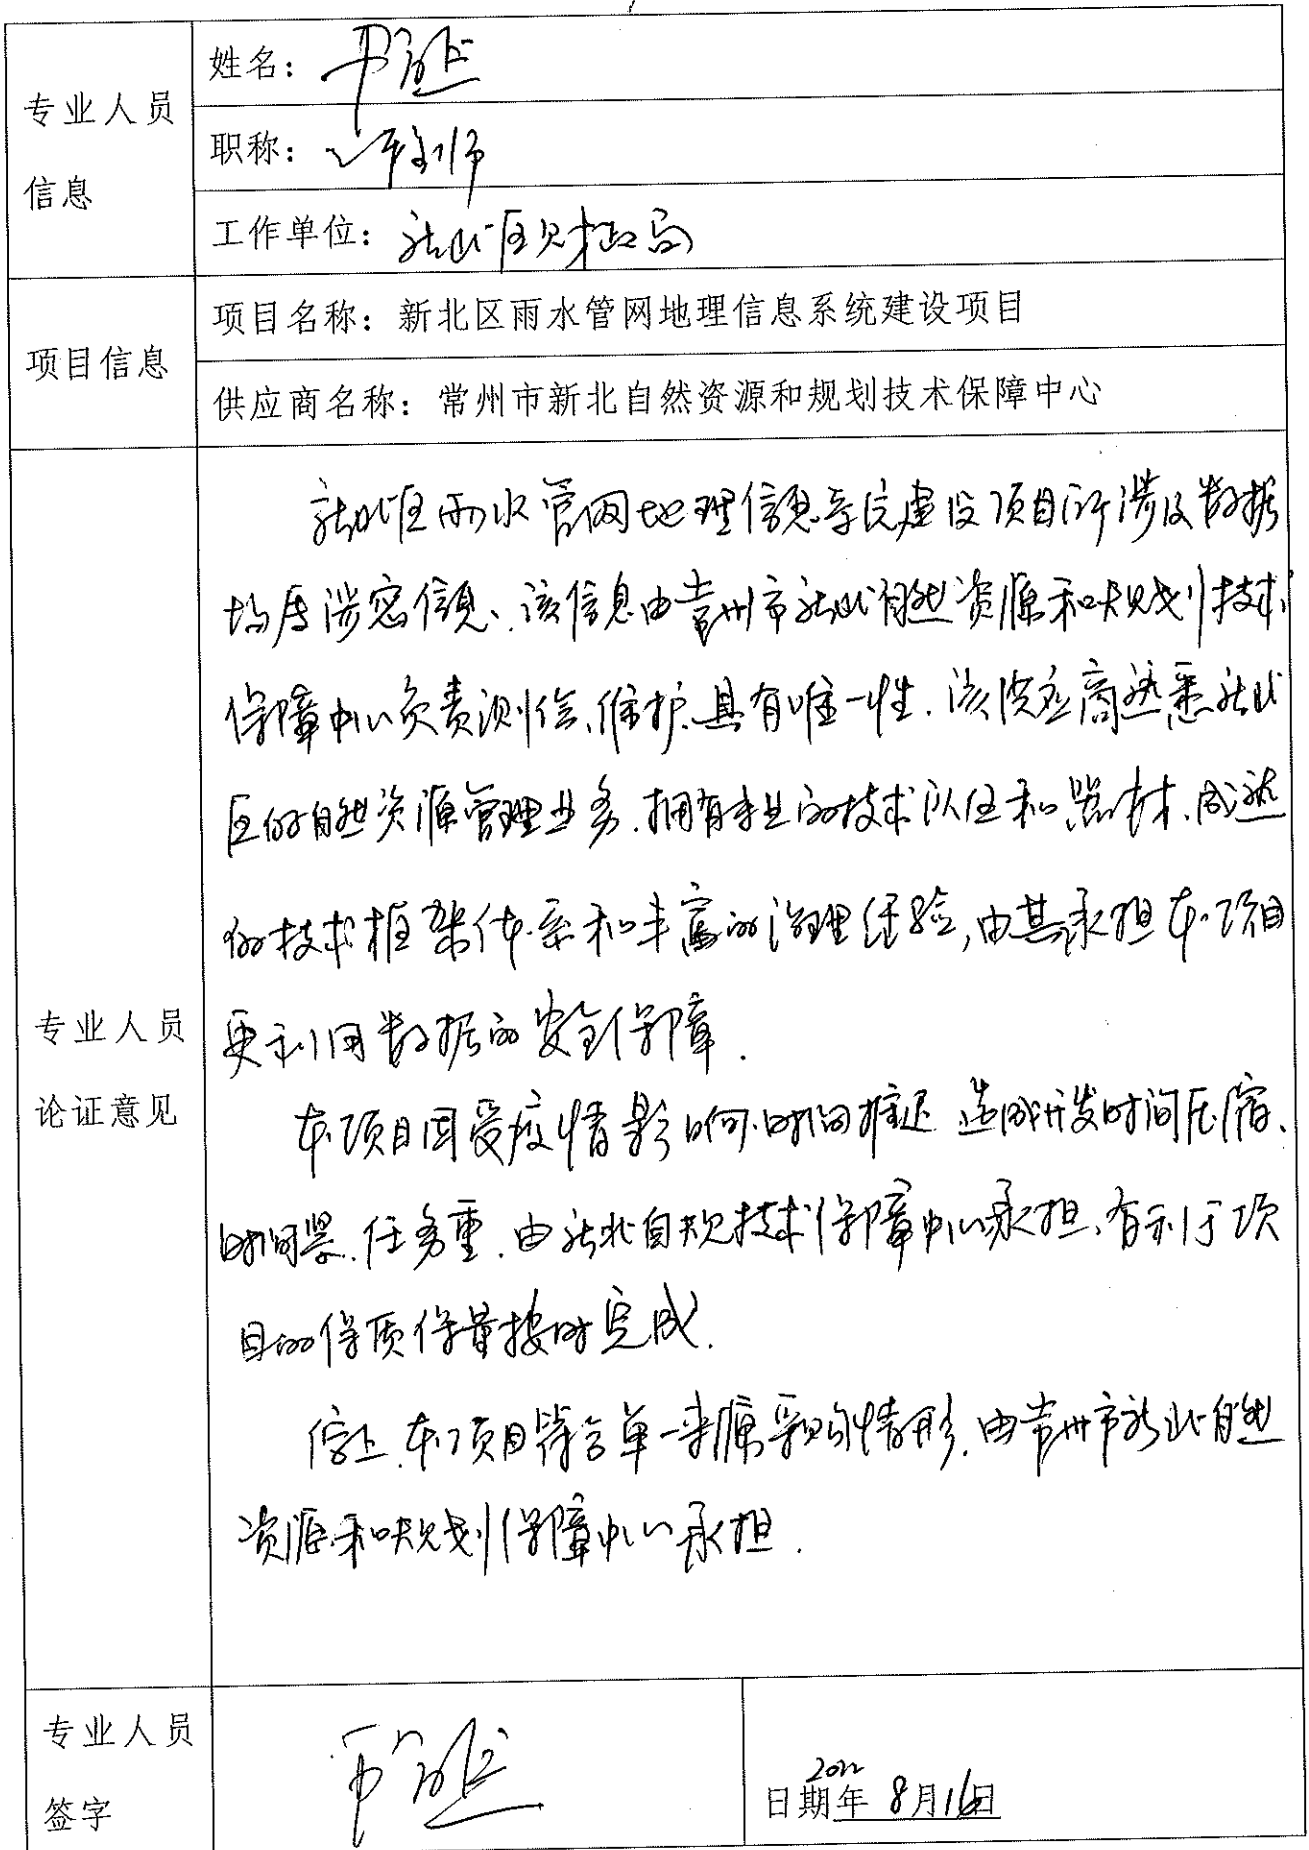 专业人员
信息
姓名：
职称：
工作单位：新北区财政局
项目信息
项目名称：新北区雨水管网地理信息系统建设项目
供应商名称：常州市新北自然资源和规划技术保障中心
专业人员
论证意见
新北区雨水管网地理信息系统建设项目所涉及数据
均属涉密信息、该信息由常州市新北自然资源和规划技术
保障中心负责测绘、维护、具有唯一性．该供应商熟悉新北
区的自然资源管理业务．拥有专业的技术队伍和器材．成熟
的技术框架体系和丰富的治理经验，由其承担本项目
更利用数据的安全保障．
本项目因受疫情影响．时间推迟 造成开发时间压缩、
时间紧．任务重．由新北自规技术保障中心承担、有利于项
目的保质保量按时完成．
综上．本项目符合单一来源采购情形．由常州市新北自然
资源和规划保障中心承担．
专业人员
签字
日期2022年 8月16日